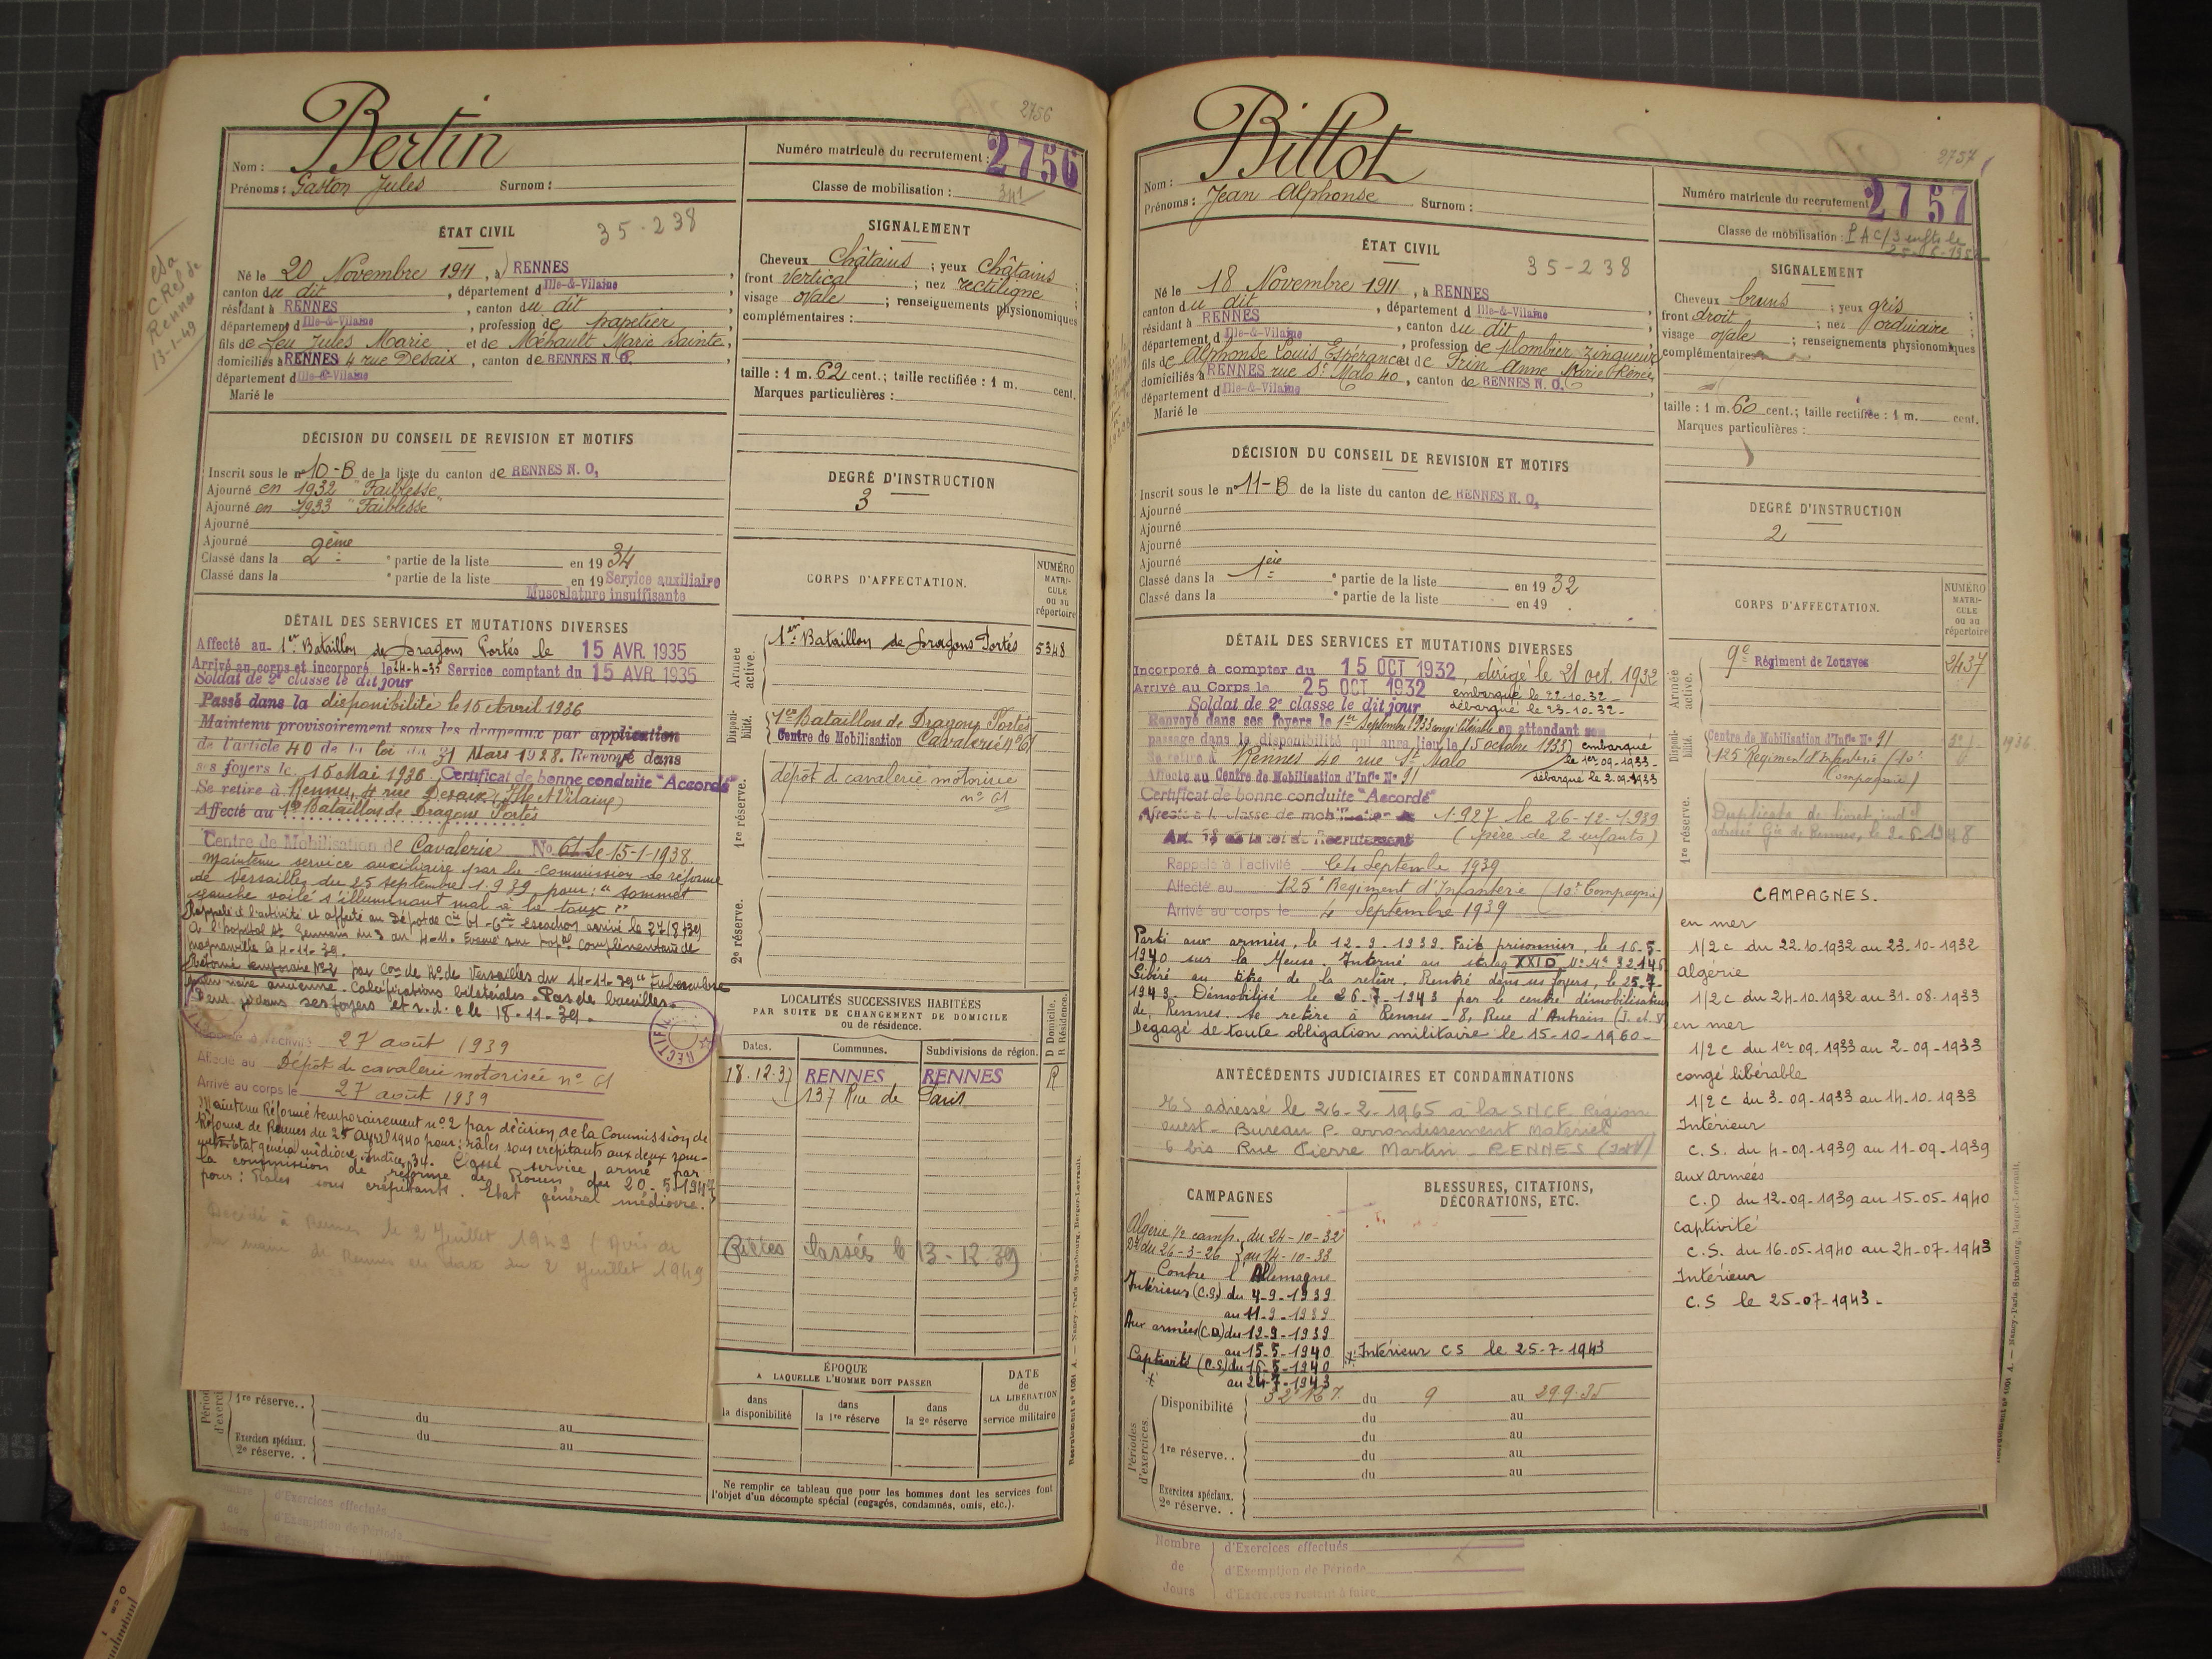 2756
Bertin
Nom :
Prénoms : Gaston Jules Surnom :
Numéro matricule du recrutement : 2756
Classe de mobilisation :
ÉTAT CIVIL
35-238
Né le 20 Novembre 1911, à RENNES,
canton du dit, département d Ille-&-Vilaine
résidant à RENNES, canton du dit
département d Ille-&-Vilaine, profession de papetier,
fils de feu Jules Marie et de Méhault Marie Sainte,
domiciliés à RENNES 4 rue Desaix, canton de RENNES N. O.,
département d Ille-&-Vilaine
Marié le
SIGNALEMENT
Cheveux Châtains ; yeux Châtains
front Vertical ; nez rectiligne ;
visage ovale ; renseignements physionomiques
complémentaires :
taille : 1 m. 62 cent. ; taille rectifiée : 1 m. cent.
Marques particulières :
Rennes
13-1-49
DÉCISION DU CONSEIL DE REVISION ET MOTIFS
Inscrit sous le n° 10-B de la liste du canton de RENNES N. O.
Ajourné en 1932 "Faiblesse"
Ajourné en 1933 "Faiblesse"
Ajourné
Ajourné
Classé dans la 2ème e partie de la liste en 1934
Classé dans la e partie de la liste en 19 Service auxiliaire
Musculature insuffisante
DEGRÉ D'INSTRUCTION
3
DÉTAIL DES SERVICES ET MUTATIONS DIVERSES
Affecté au 1er Bataillon de Dragons Portés le 15 AVR 1935
Arrivé au corps et incorporé le 24-4-35 Service comptant du 15 AVR 1935
Soldat de 2e classe le dit jour
Passé dans la disponibilité le 15 Avril 1936
Maintenu provisoirement sous les drapeaux par application
de l'article 40 de la loi du 31 Mars 1928. Renvoyé dans
ses foyers le 15 Mai 1936. Certificat de bonne conduite "Accordé"
Se retire à Rennes, 4 rue Desaix (Ille et Vilaine)
Affecté au 1er Bataillon de Dragons Portés
Centre de Mobilisation de Cavalerie No 61 le 15-1-1938.
Maintenu service auxiliaire par la commission de réforme
de Versailles du 25 septembre 1939 pour : "sommet
gauche voilé s'illuminant mal à la toux"
Rappelé à l'activité et affecté au Dépôt de Cie 61 - 6ème Escadron arrivé le 27/8/39
A l'hopital St Germain du 3 au 4-11. Evacué sur complémentaire de
Magnanville le 4-11-39.
Réformé temporaire N°2 par Con de Re de Versailles du 14-11-39 "Tuberculose
pulmonaire ancienne. Calcifications bilatérales. Pas de bacilles.
dans ses foyers et r.d.c le 18-11-39.
RECTIFIÉ
Rappelé à l'activité 27 août 1939
Affecté au Dépôt de cavalerie motorisée n° 61
Arrivé au corps le 27 août 1939
Maintenu Réformé temporairement n°2 par décision de la Commission de
Réforme de Rennes du 25 avril 1940 pour : râles sous crépitants aux deux som-
mets. Etat général médiocre. Indice 34. Classé service armé par
la commission de réforme de Rouen du 20-5-194
pour : Rales sous crépitants. Etat général médiocre.
Décédé à Rennes le 2 Juillet 1949 (Avis du
maire de Rennes en date du 2 Juillet 1949
CORPS D'AFFECTATION.
NUMÉRO MATRICULE ou au répertoire
Armée active.
1er Bataillon de Dragons Portés 5348
Disponibilité.
1er Bataillon de Dragons Portés
Centre de Mobilisation Cavalerie n° 61
1re réserve.
dépôt de cavalerie motorisée
n° 61
2e réserve.
LOCALITÉS SUCCESSIVES HABITÉES
PAR SUITE DE CHANGEMENT DE DOMICILE
ou de résidence.
D Domicile. R Résidence.
Dates. Communes. Subdivisions de région.
18.12.37 RENNES RENNES R
137 Rue de Paris
Pièces classées le 13-12-39
ÉPOQUE
A LAQUELLE L'HOMME DOIT PASSER
dans la disponibilité
dans la 1re réserve
dans la 2e réserve
DATE de LA LIBÉRATION du service militaire
Périodes d'exercices
1re réserve. .
du au
du au
Exercices spéciaux. 2e réserve. .
Ne remplir ce tableau que pour les hommes dont les services font
l'objet d'un décompte spécial (engagés, condamnés, omis, etc.).
Nombre de Jours
d'Exercices effectués
d'Exemption de Période
Recrutement n° 1001 A. — Nancy-Paris-Strasbourg, Berger-Levrault.
2757
Billot
Nom :
Prénoms : Jean Alphonse Surnom :
Numéro matricule du recrutement 2757
Classe de mobilisation : PAC/3 enfts le
ÉTAT CIVIL
35-238
Né le 18 Novembre 1911, à RENNES
canton du dit, département d Ille-&-Vilaine
résidant à RENNES, canton du dit
département d Ille-&-Vilaine, profession de plombier zingueur
fils de Alphonse Louis Espérance et de Frin Anne Marie Renée,
domiciliés à RENNES rue St Malo 40, canton de RENNES N. O.,
département d Ille-&-Vilaine
Marié le
SIGNALEMENT
Cheveux bruns ; yeux gris
front droit ; nez ordinaire ;
visage ovale ; renseignements physionomiques
complémentaires
taille : 1 m. 60 cent. ; taille rectifiée : 1 m. cent.
Marques particulières :
DÉCISION DU CONSEIL DE REVISION ET MOTIFS
Inscrit sous le n° 11-B de la liste du canton de RENNES N. O.
Ajourné
Ajourné
Ajourné
Ajourné
Classé dans la 1ère e partie de la liste en 1932
Classé dans la e partie de la liste en 19
DEGRÉ D'INSTRUCTION
2
DÉTAIL DES SERVICES ET MUTATIONS DIVERSES
Incorporé à compter du 15 OCT 1932, dirigé le 21 oct. 1932
Arrivé au Corps le 25 OCT 1932 embarqué le 22-10-32
Soldat de 2e classe le dit jour débarqué le 23-10-32
Renvoyé dans ses foyers le 1er Septembre 1933 congé libérable en attendant son
passage dans la disponibilité qui aura lieu le 15 octobre 1933) embarqué
Se retire à Rennes 40 rue St Malo le 1er-09-1933
Affecté au Centre de Mobilisation d'Infie N° 91 débarqué le 2.09.1933
Certificat de bonne conduite "Accordé"
Affecté à la classe de mobilisation de 1.927 le 26-12-1939
Art. 58 de la loi de Recrutement (père de 2 enfants)
Rappelé à l'activité le 4 Septembre 1939
Affecté au 125e Régiment d'Infanterie (10e Compagnie)
Arrivé au corps le 4 Septembre 1939
Parti aux armées, le 12-9-1939. Fait prisonnier, le 16-5-
1940 sur la Meuse. Interné au stalag XXID
Libéré au titre de la relève. Rentré dans ses foyers, le 25-7-
1943. Démobilisé le 26-7-1943 par le centre démobilisateur
de Rennes. Se retire à Rennes - 8, Rue d'Antrain (I. et V)
Dégagé de toute obligation militaire le 15-10-1960-
CORPS D'AFFECTATION.
NUMÉRO MATRICULE ou au répertoire
Armée active.
9e Régiment de Zouaves 2437
Disponibilité.
Centre de Mobilisation d'Infie N° 91
125e Régiment d'Infanterie (10e
Compagnie)
1936
1re réserve.
Duplicata de livret indel
adressé Gie de Rennes, le 2-6-1948
ANTÉCÉDENTS JUDICIAIRES ET CONDAMNATIONS
adressé le 26-2-1965 à la SNCF Région
ouest - Bureau P. arrondissement Matériel
6 bis Rue Pierre Martin - RENNES
CAMPAGNES
Algérie 1/2 camp. du 24-10-32
Dt du 26-3-26 au 14-10-33
Contre l'Allemagne
Intérieur (C.S.) du 4-9-1939
au 11-9-1939
Aux armées (C.D.) du 12-9-1939
au 15-5-1940
Captivité (C.S.) du 16-5-1940
au 24-7-1943
BLESSURES, CITATIONS,
DÉCORATIONS, ETC.
Intérieur CS le 25-7-1943
CAMPAGNES.
en mer
1/2 c du 22.10.1932 au 23.10-1932
Algérie
1/2 c du 24-10.1932 au 31-08-1933
en mer
1/2 c du 1er 09-1933 au 2-09-1933
congé libérable
1/2 c du 3-09-1933 au 14-10-1933
Intérieur
C. S. du 4-09-1939 au 11-09-1939
aux armées
C. D du 12-09-1939 au 15-05-1940
captivité
C. S. du 16-05-1940 au 24-07-1943
Intérieur
C. S le 25-07-1943-
Périodes d'exercices
Disponibilité du 9 au 29.9.35
du au
du au
1re réserve. . du au
du au
Exercices spéciaux. 2e réserve. .
Nombre de Jours
d'Exercices effectués
d'Exemption de Période
d'Exercices restant à faire
Recrutement n° 1001 A. — Nancy-Paris-Strasbourg, Berger-Levrault.